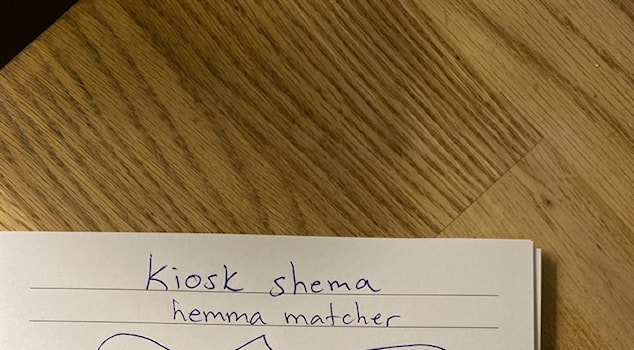 kiosk shema
hemma matcher